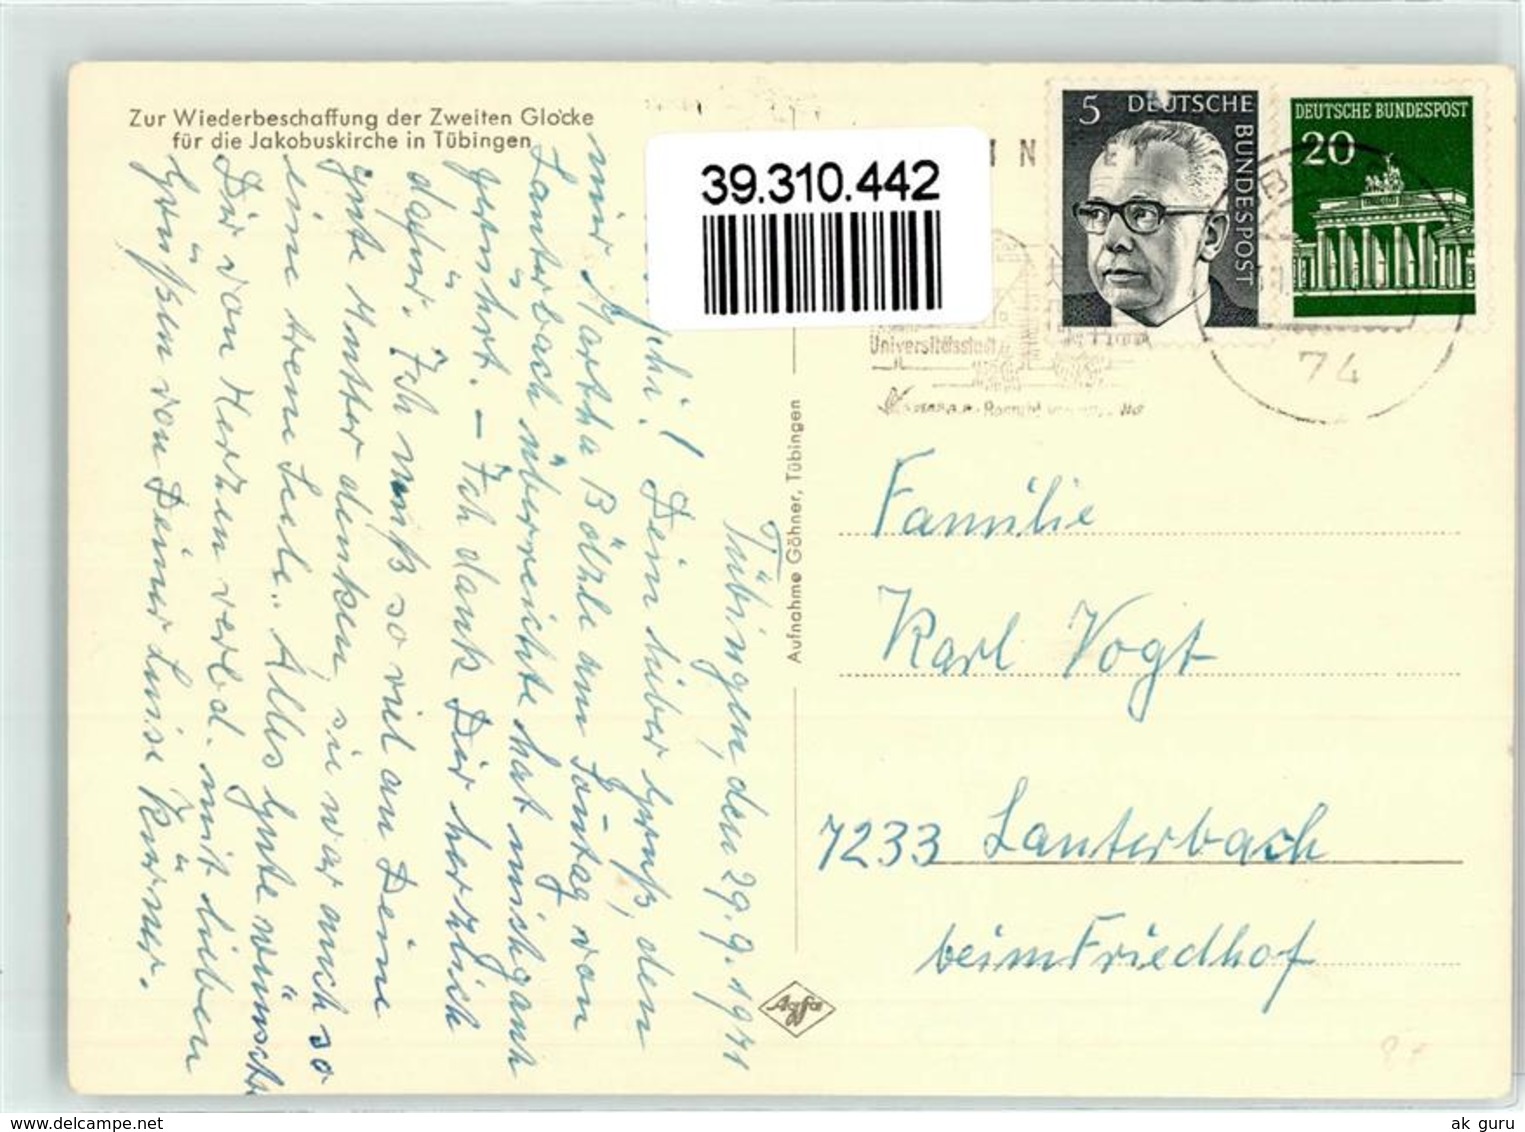 Zur Wiederbeschaffung der Zweiten Glocke
für die Jakobuskirche in Tübingen
39.310.442
5 DEUTSCHE BUNDESPOST
DEUTSCHE BUNDESPOST
20
Universitätsstadt
74
Tübingen, den 29.9.1971
! Dein lieber Gruß, den
mir Martha Bölzle am Sonntag von
Lauterbach überreichte hat mich ganz
gerührt. – Ich dank Dir herzlich
dafür. Ich muß so viel an Deine
gute Mutter denken, sie war auch so
eine treue Seele. Alles Gute wünscht
Dir von Herzen verbd. mit lieben
Grüßen von Deiner Luise Kürner.
Aufnahme Göhner, Tübingen
Agfa
Familie
Karl Vogt
7233 Lauterbach
beim Friedhof
www.delcampe.net
ak guru